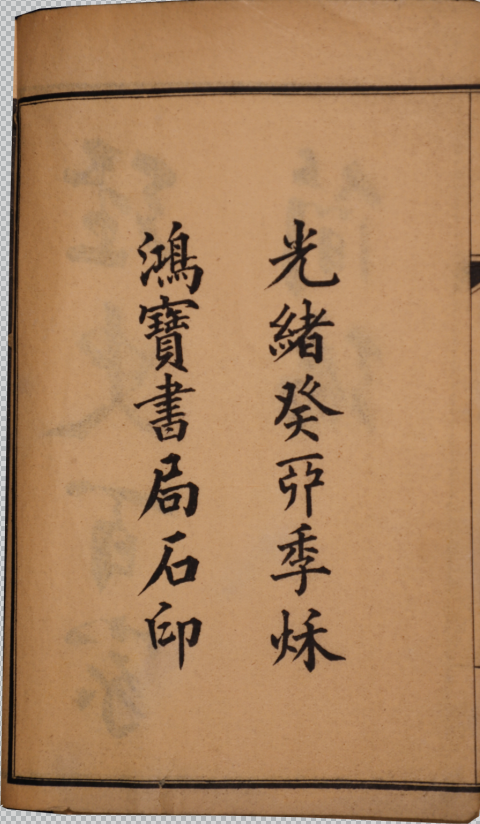 光緒癸丣季秌
鴻寶書局石印